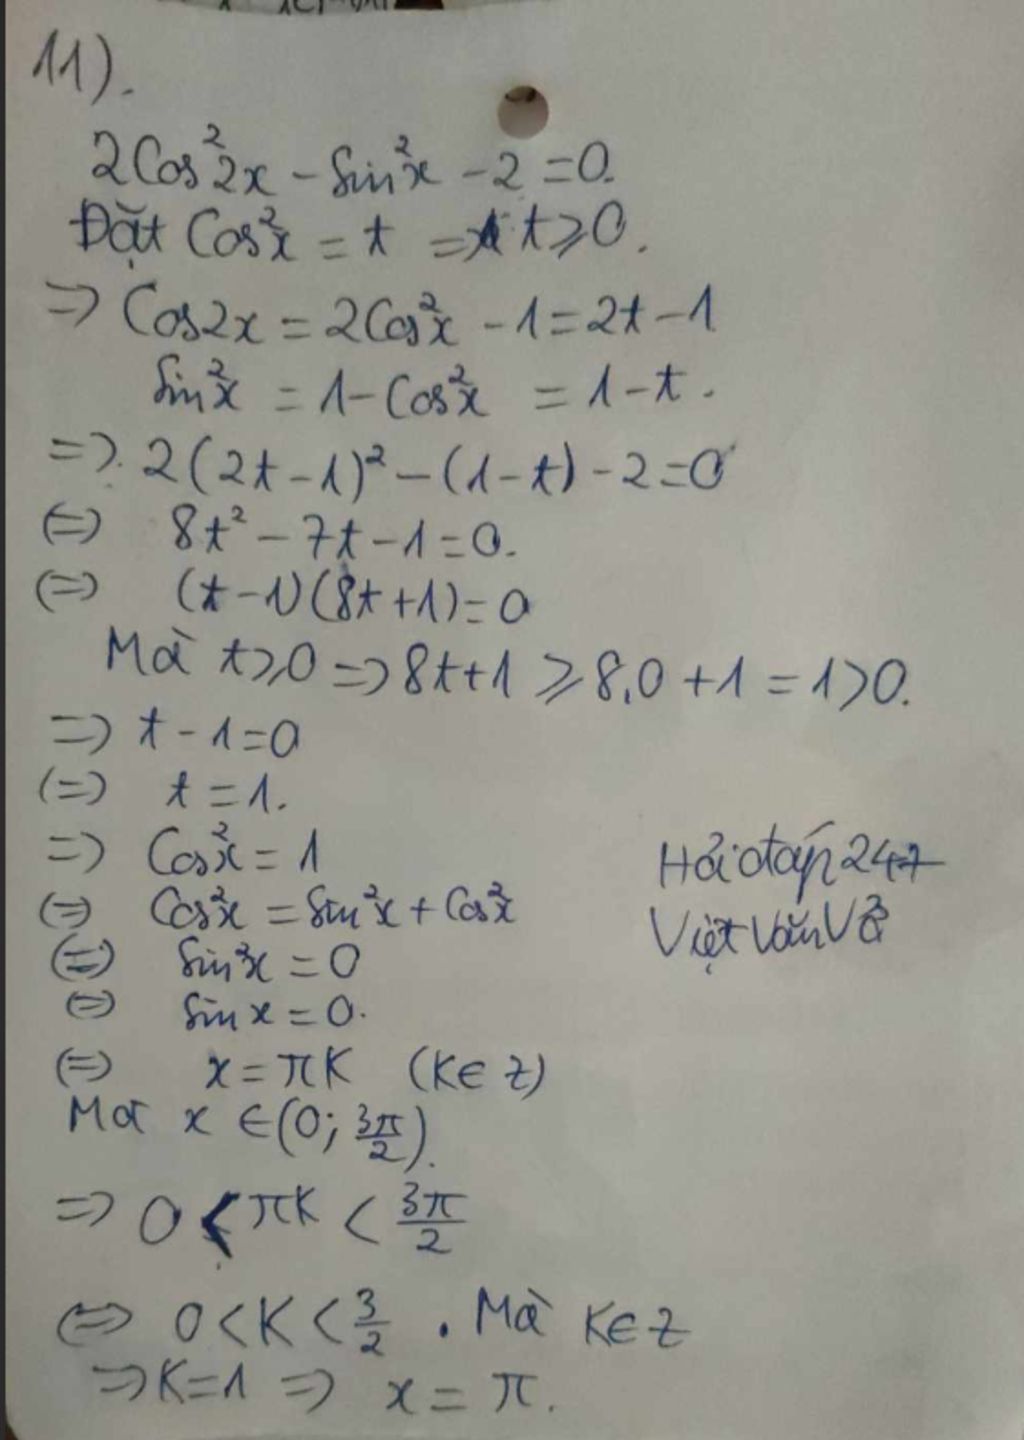 11).
2Cos²2x - Sin²x - 2 = 0.
Đặt Cos²x = t => t ≥ 0.
=> Cos2x = 2Cos²x - 1 = 2t - 1
Sin²x = 1 - Cos²x = 1 - t.
=> 2(2t - 1)² - (1 - t) - 2 = 0
(=) 8t² - 7t - 1 = 0.
(=) (t - 1)(8t + 1) = 0
Mà t ≥ 0 => 8t + 1 ≥ 8.0 + 1 = 1 > 0.
=> t - 1 = 0
(=) t = 1.
=> Cos²x = 1
(=) Cos²x = Sin²x + Cos²x
(=) Sin²x = 0
(=) Sin x = 0.
(=) x = πK (K ∈ Z)
Mà x ∈ (0; 3π/2).
=> 0 < πK < 3π/2
(=) 0 < K < 3/2 . Mà K ∈ Z
=> K = 1 => x = π.
Hỏi đáp 247
Việt Văn Vở